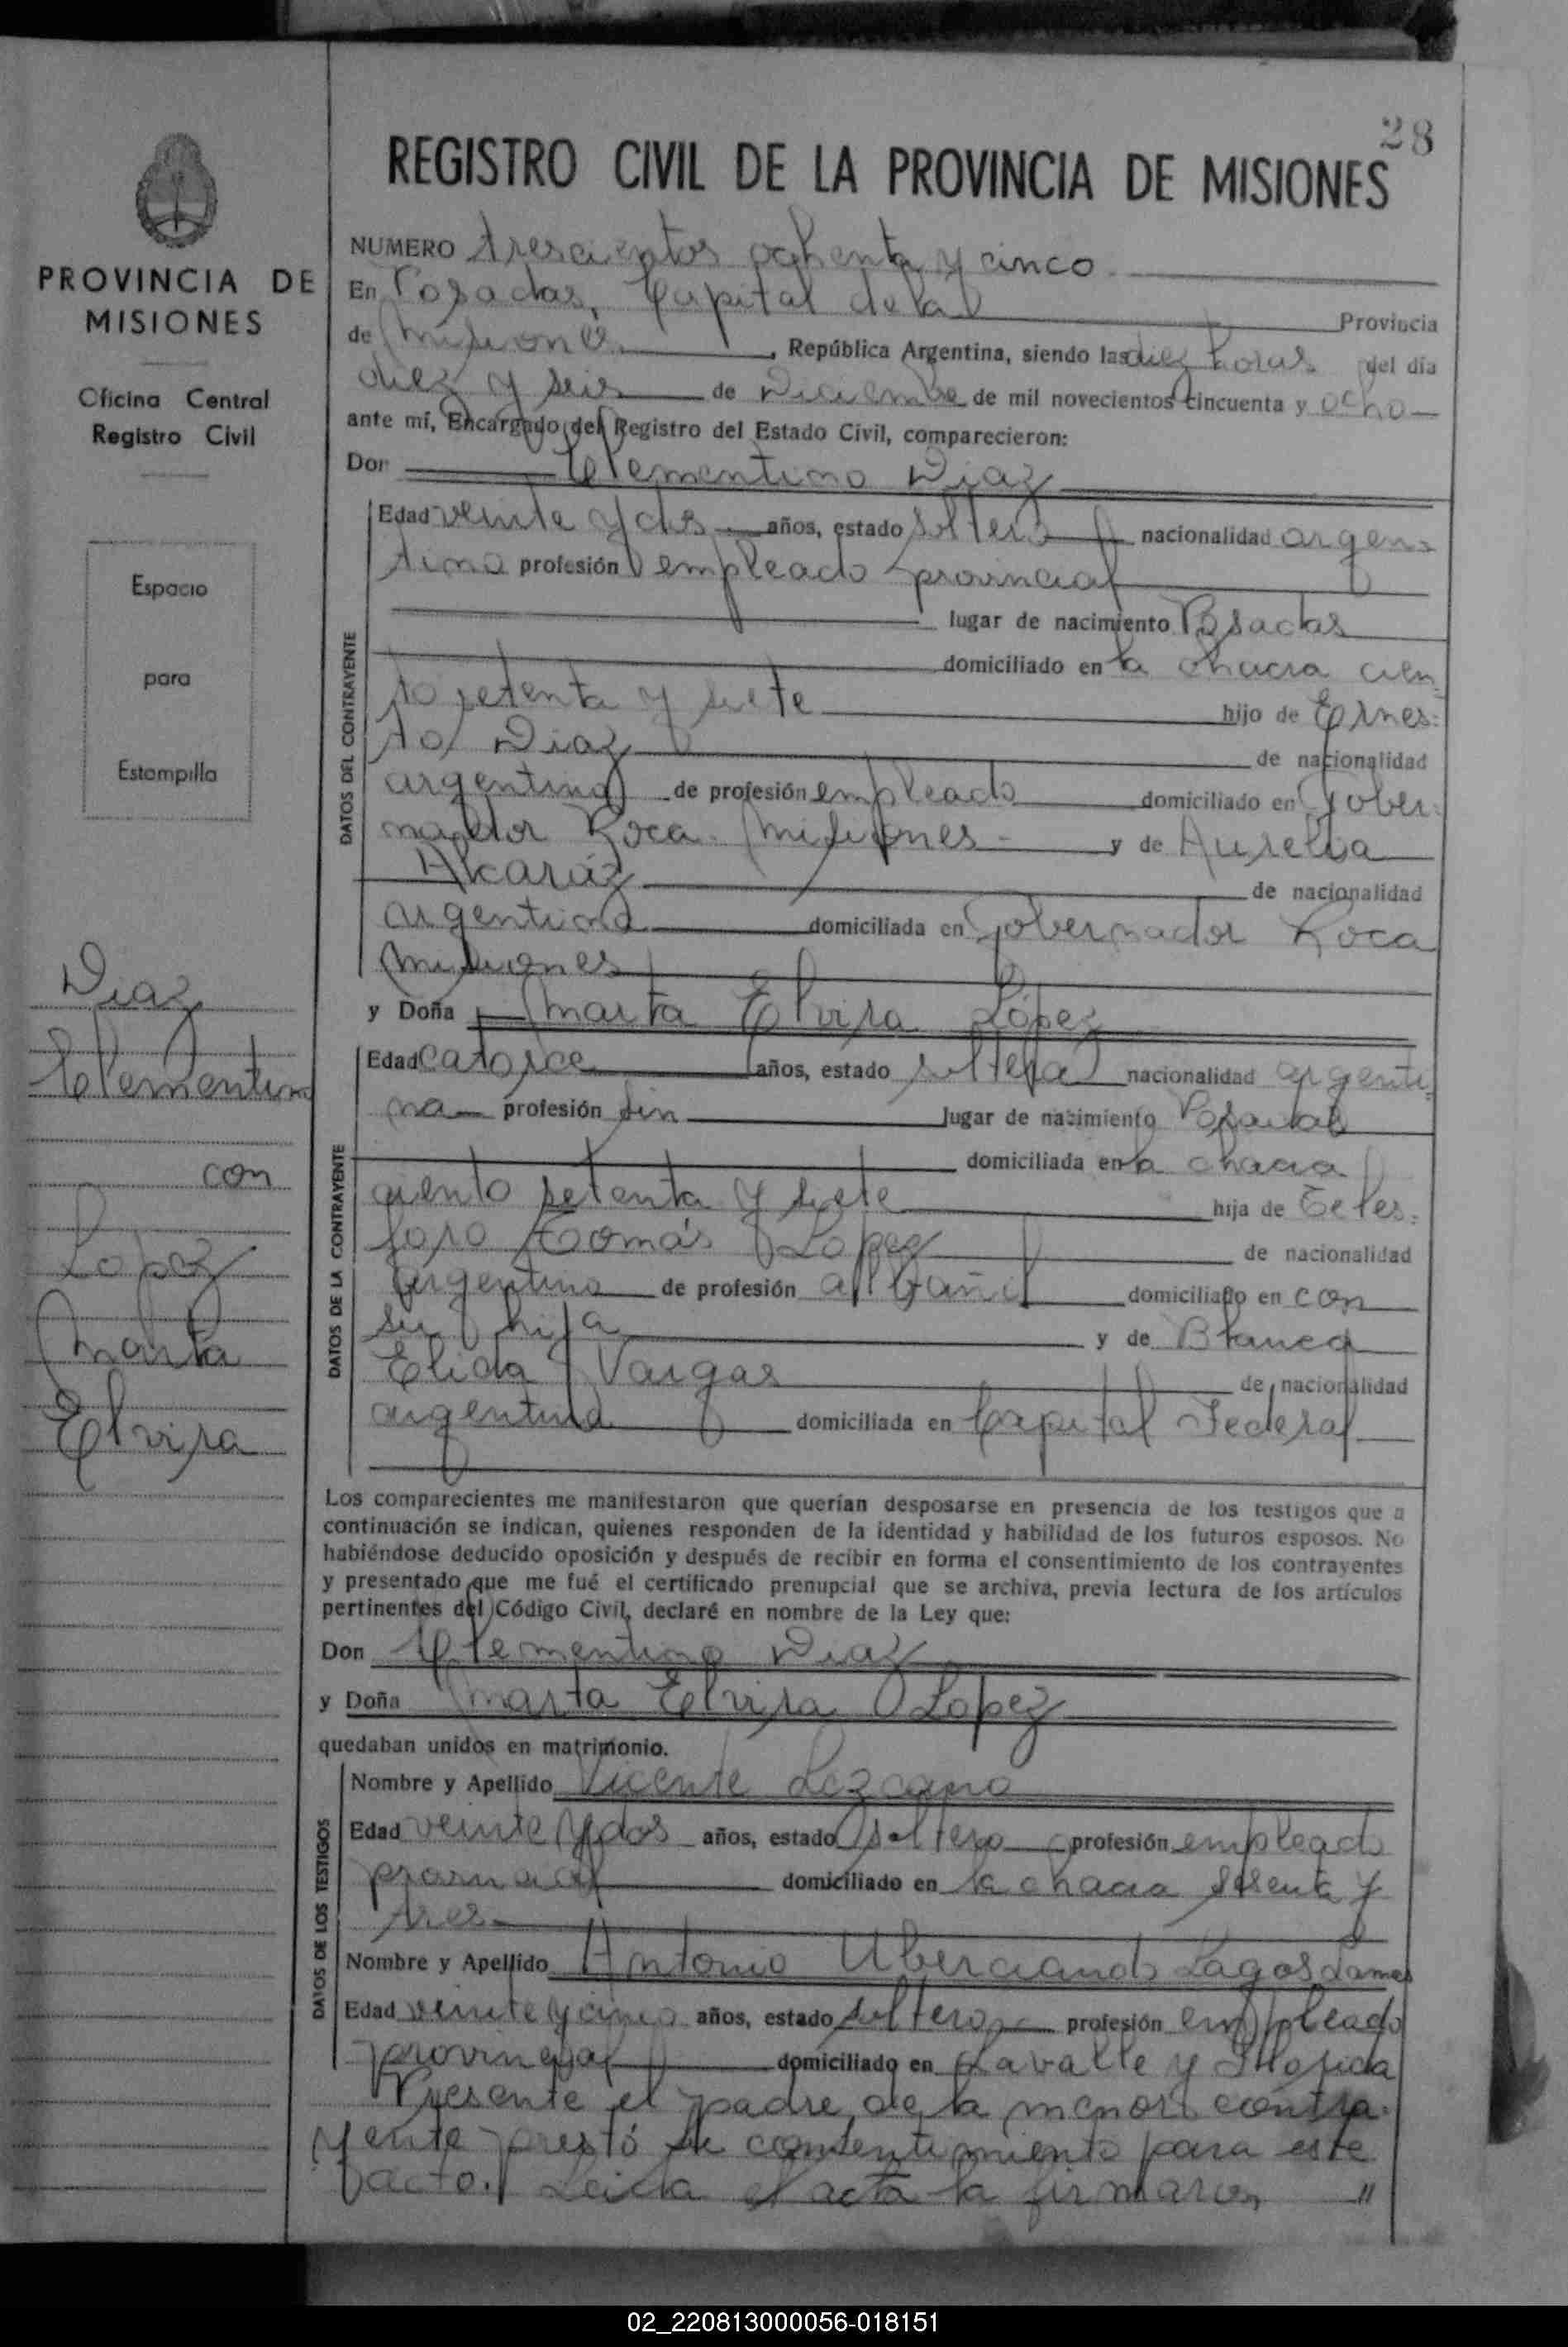 28
REGISTRO CIVIL DE LA PROVINCIA DE MISIONES
PROVINCIA DE
MISIONES
Oficina Central
Registro Civil
Espacio
para
Estampilla
Diaz
Clementino
con
Lopez
Marta
Elvira
NUMERO trescientos ochenta y cinco
En Posadas, Capital de la Provincia
de Misiones, República Argentina, siendo las diez horas del día
diez y seis de Diciembre de mil novecientos cincuenta y ocho
ante mí, Encargado del Registro del Estado Civil, comparecieron:
Don Clementino Diaz
DATOS DEL CONTRAYENTE
Edad veinte y dos años, estado soltero nacionalidad argen-
tina profesión empleado provincial
lugar de nacimiento Posadas
domiciliado en la chacra cien-
to setenta y siete hijo de Ernes-
to Diaz de nacionalidad
argentina de profesión empleado domiciliado en Gober-
nador Roca. Misiones - y de Aurelia
Alcaráz de nacionalidad
argentina domiciliada en Gobernador Roca
Misiones
y Doña Marta Elvira López
DATOS DE LA CONTRAYENTE
Edad catorce años, estado soltera nacionalidad argenti-
na profesión sin lugar de nacimiento Posadas
domiciliada en la chacra
ciento setenta y siete hija de Teles-
foro Tomás Lopez de nacionalidad
argentina de profesión albañil domiciliado en con
su hija y de Blanca
Elida Vargas de nacionalidad
argentina domiciliada en Capital Federal
Los comparecientes me manifestaron que querían desposarse en presencia de los testigos que a
continuación se indican, quienes responden de la identidad y habilidad de los futuros esposos. No
habiéndose deducido oposición y después de recibir en forma el consentimiento de los contrayentes
y presentado que me fué el certificado prenupcial que se archiva, previa lectura de los artículos
pertinentes del Código Civil, declaré en nombre de la Ley que:
Don Clementino Diaz
y Doña Marta Elvira Lopez
quedaban unidos en matrimonio.
DATOS DE LOS TESTIGOS
Nombre y Apellido Vicente Lezcano
Edad veinte y dos años, estado soltero profesión empleado
provincial domiciliado en la chacra sesenta y
tres
Nombre y Apellido Antonio Lagos
Edad veinte y cinco años, estado soltero profesión empleado
provincial domiciliado en Lavalle y
Presente el padre de la menor contra-
yente prestó su consentimiento para este
acto. Leida el acta la firmaron "
02_220813000056-018151